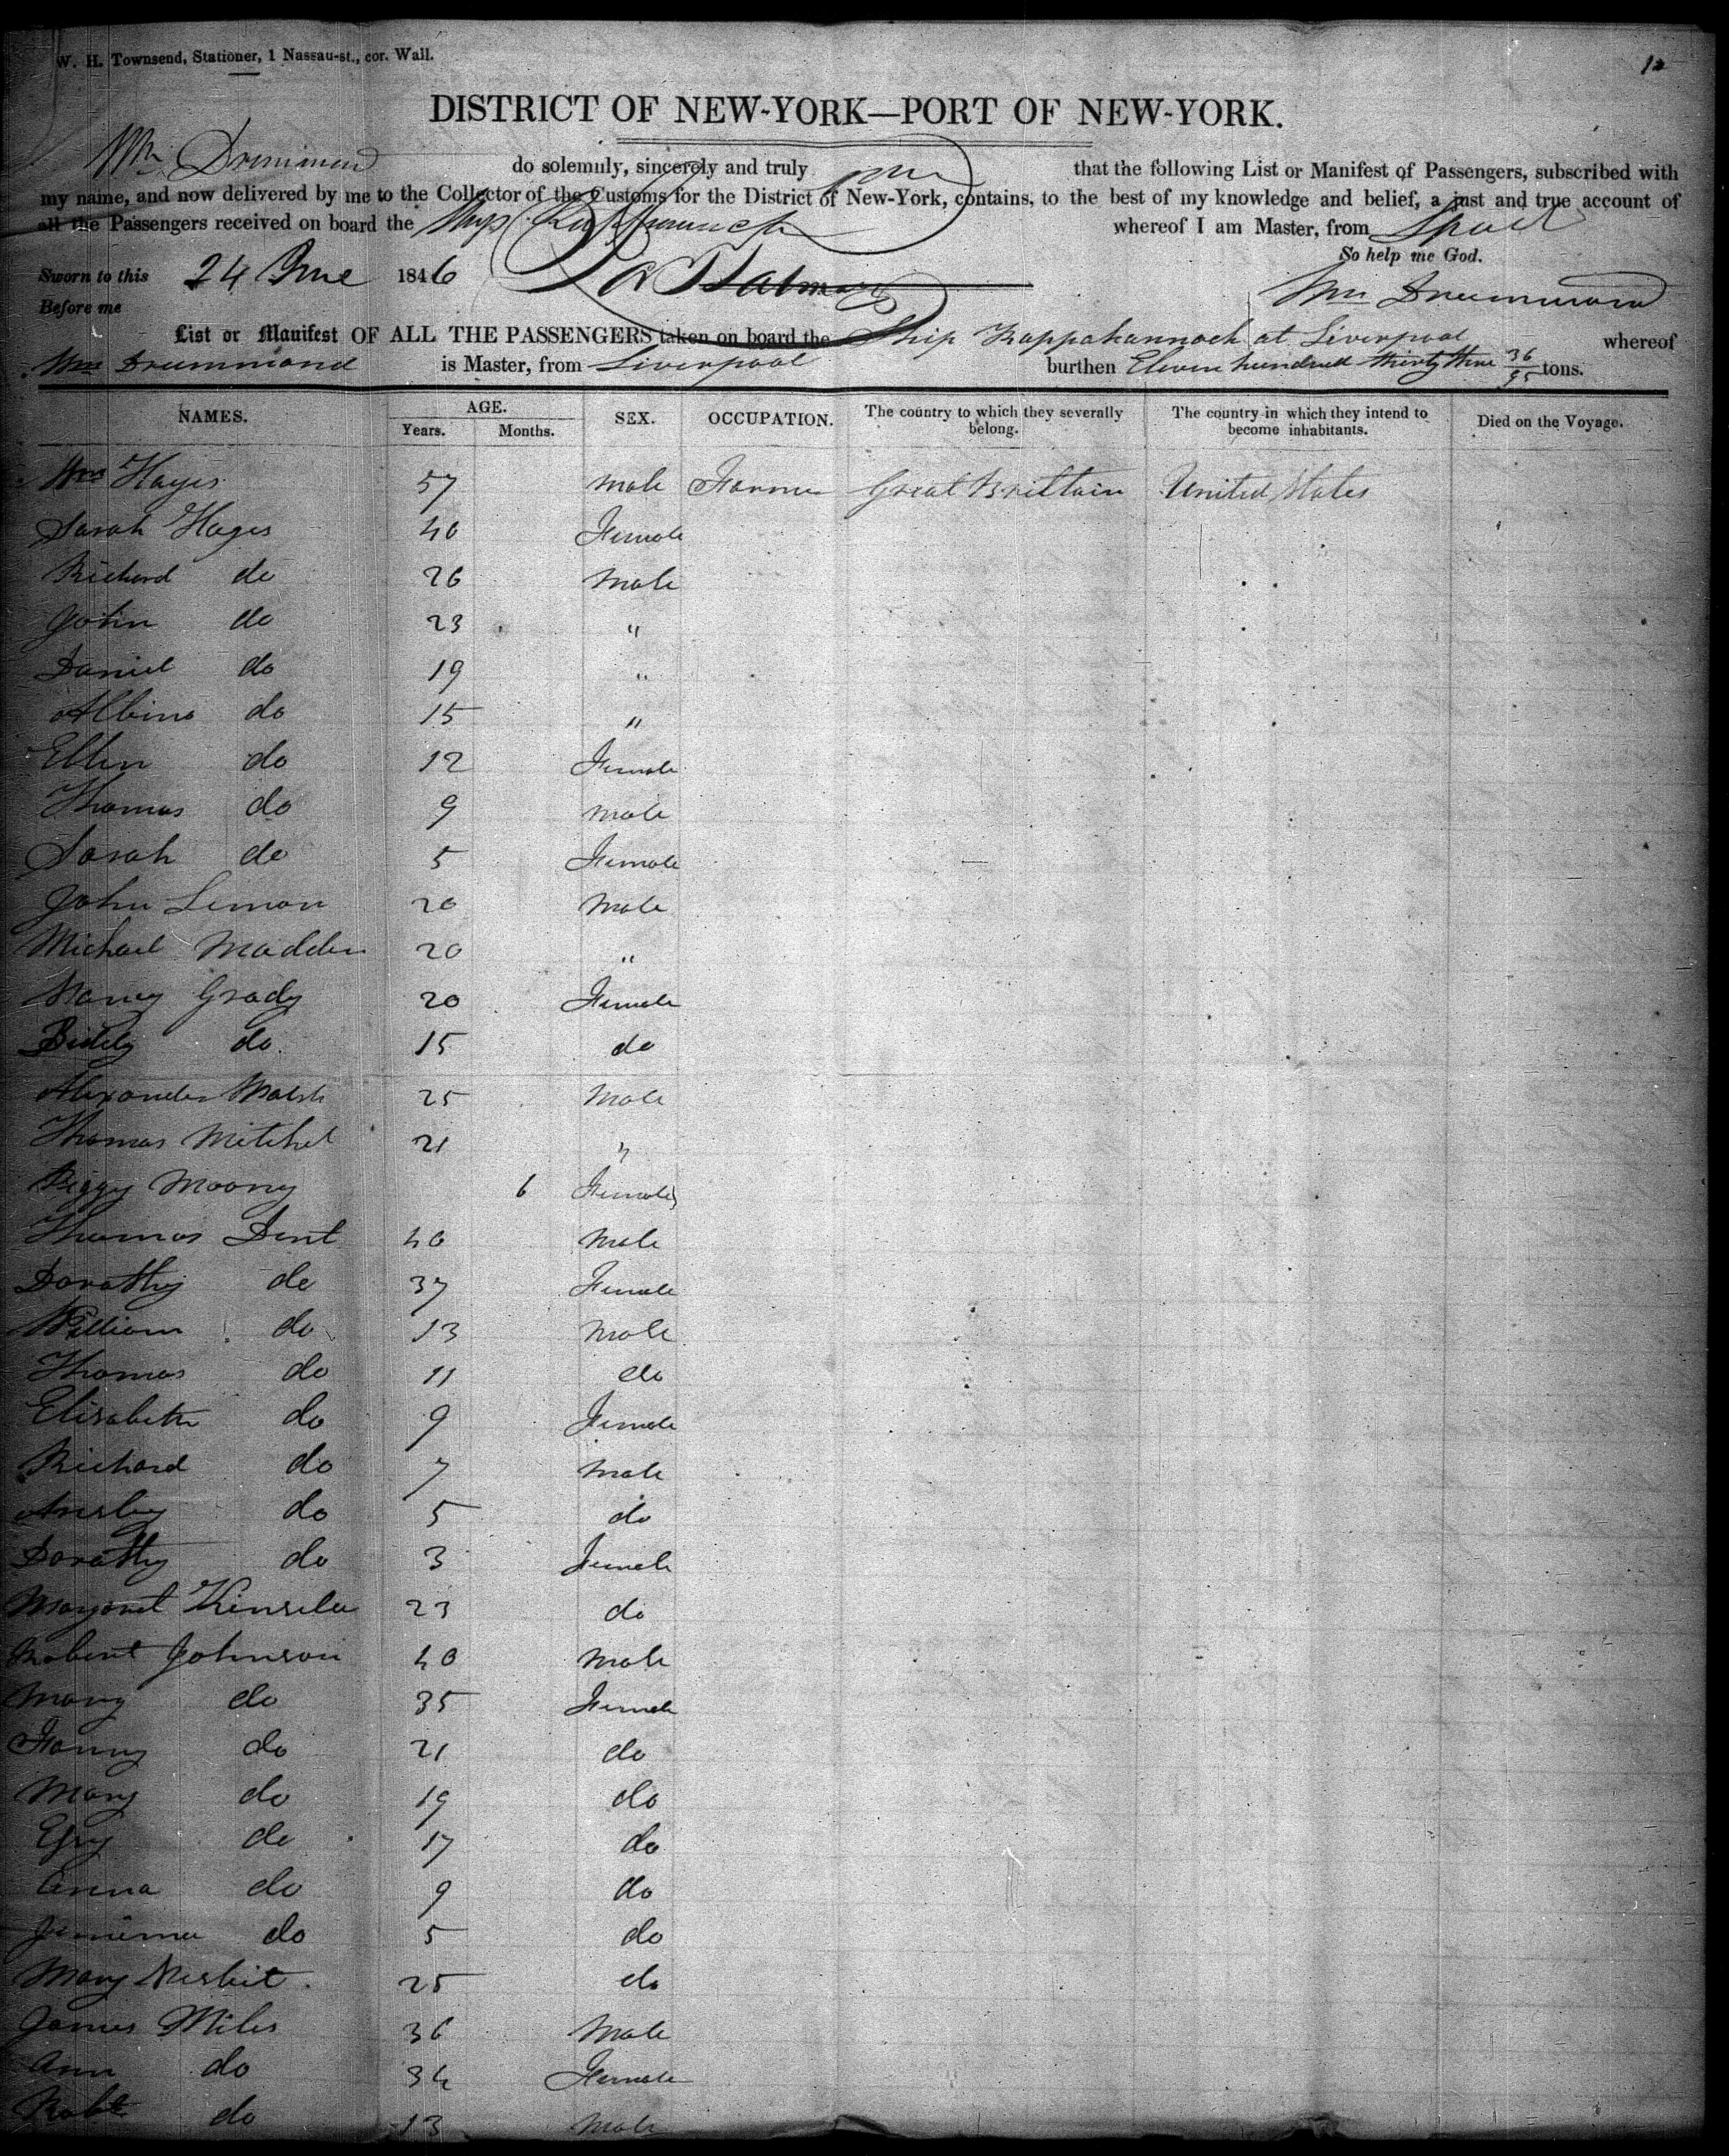 W. H. Townsend, Stationer, 1 Nassau-st., cor. Wall.
12
DISTRICT OF NEW-YORK—PORT OF NEW-YORK.
Wm Drummond do solemnly, sincerely and truly that the following List or Manifest of Passengers, subscribed with
my name, and now delivered by me to the Collector of the Customs for the District of New-York, contains, to the best of my knowledge and belief, a just and true account of
all the Passengers received on board the Ship Rappahannock whereof I am Master, from Lpool
So help me God.
Sworn to this 24 June 1846
Before me
Wm Drummond
List or Manifest OF ALL THE PASSENGERS taken on board the Ship Rappahannock at Liverpool whereof
Wm Drummond is Master, from Liverpool burthen Eleven hundred thirty three 36/95 tons.
NAMES. AGE. SEX. OCCUPATION. The country to which they severally belong. The country in which they intend to become inhabitants. Died on the Voyage.
Years. Months.
Wm Hayes 57 Male Farmer Great Brittain United States
Sarah Hayes 40 Female
Richard do 26 Male
John do 23 "
Daniel do 19 "
Albino do 15 "
Ellen do 12 Female
Thomas do 9 Male
Sarah do 5 Female
John Limon 20 Male
Michael Madden 20 "
Nancy Grady 20 Female
Biddy do 15 do
Alexander Walsh 25 Male
Thomas Mitchel 21 "
Peggy Moony 6 Female
Thomas Dent 40 Male
Dorathy do 37 Female
William do 13 Male
Thomas do 11 do
Elisabeth do 9 Female
Richard do 7 Male
do 5 do
Dorathy do 3 Female
Margaret Kinsela 23 do
Robert Johnson 40 Male
Mary do 35 Female
Fanny do 21 do
Mary do 19 do
do 17 do
Anna do 9 do
Jemima do 5 do
Mary Nesbit 25 do
James Miles 36 Male
Ann do 34 Female
Robt do 13 Male